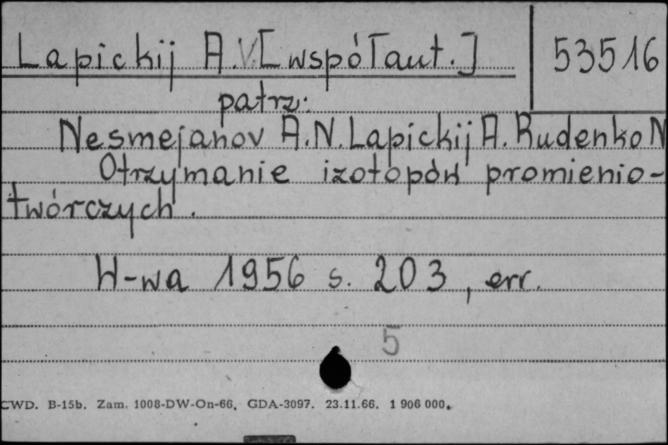 Lapickij A.V. [współaut.] 53516
patrz:
Nesmejanov A.N. Lapickij A. Rudenko N
Otrzymanie izotopów promienio-
twórczych.
W-wa 1956 s. 203, err.
5
CWD. B-15b. Zam. 1008-DW-On-66. GDA-3097. 23.11.66. 1 906 000.